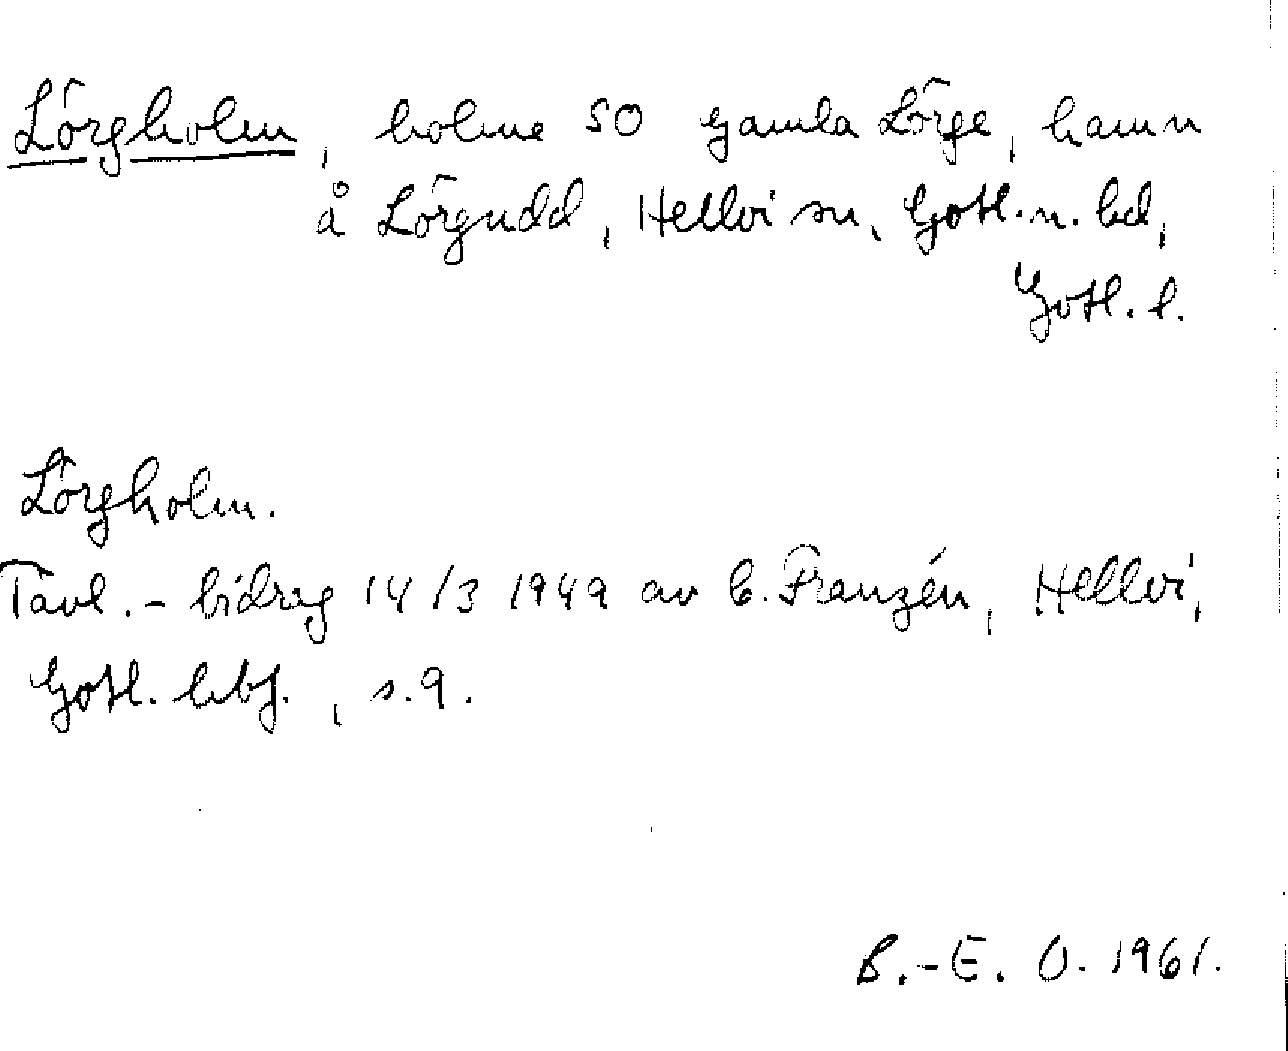 Lörgholm, holme SO gamla Lörge, hamn
å Lörgudd, Hellvi sn, Gotl. n. hd,
Gotl. l.
Lörgholm.
Tävl.-bidrag 14/3 1949 av C. Franzén, Hellvi,
Gotl. hbf., s. 9.
B.-E. O. 1961.